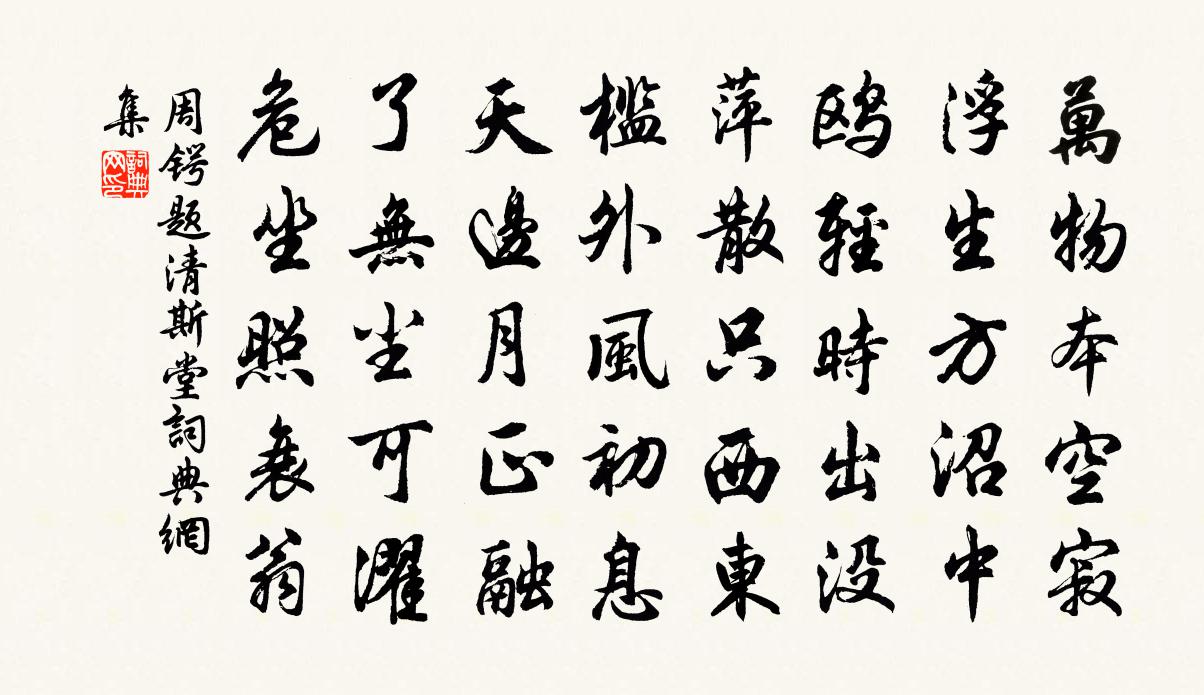 萬物本空寂
浮生方沼中
鸥輕時出没
萍散只西東
檻外風初息
天邊月正融
了無尘可濯
危坐照衰翁
周锷题清斯堂詞典網
集
詞典
网印